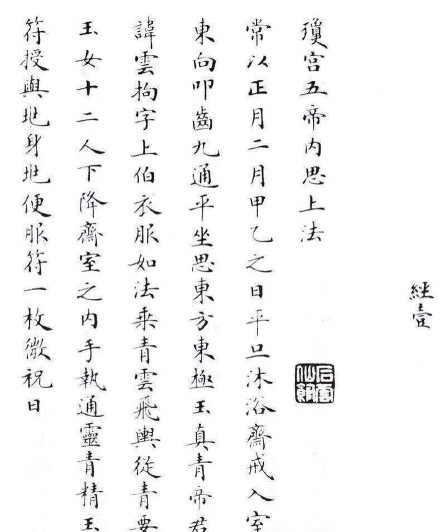 經壹
瓊宮五帝內思上法
常以正月二月甲乙之日平旦沐浴齋戒入室
東向叩齒九通平坐思東方東極玉真青帝君
諱雲拘字上伯衣服如法乘青雲飛輿從青要
玉女十二人下降齋室之內手執通靈青精玉
符授與地身地便服符一枚微祝曰